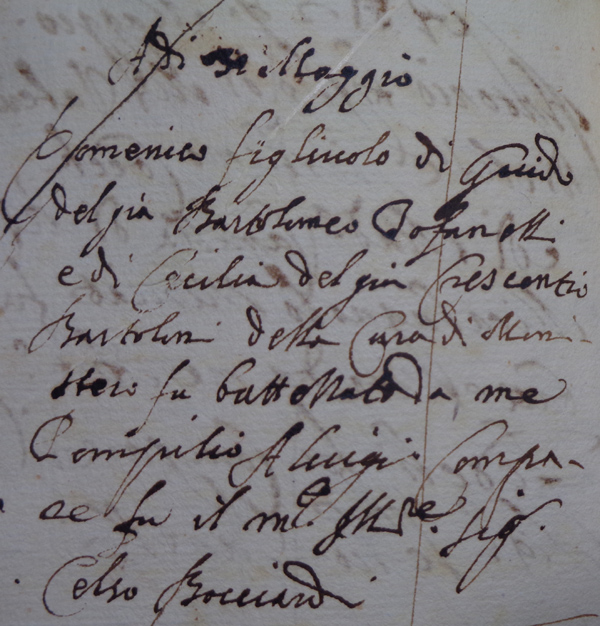 Adi Maggio
Domenico figliuolo di Guido
del gia Bartolomeo Tofanelli
e di Cecilia del gia Crescentio
Bartolini della Cura di Moni-
stero fu battezzato da me
Pompilio Aluigi. Compa-
re fu il mto Illre. Sigr.
Celso Bocciardi